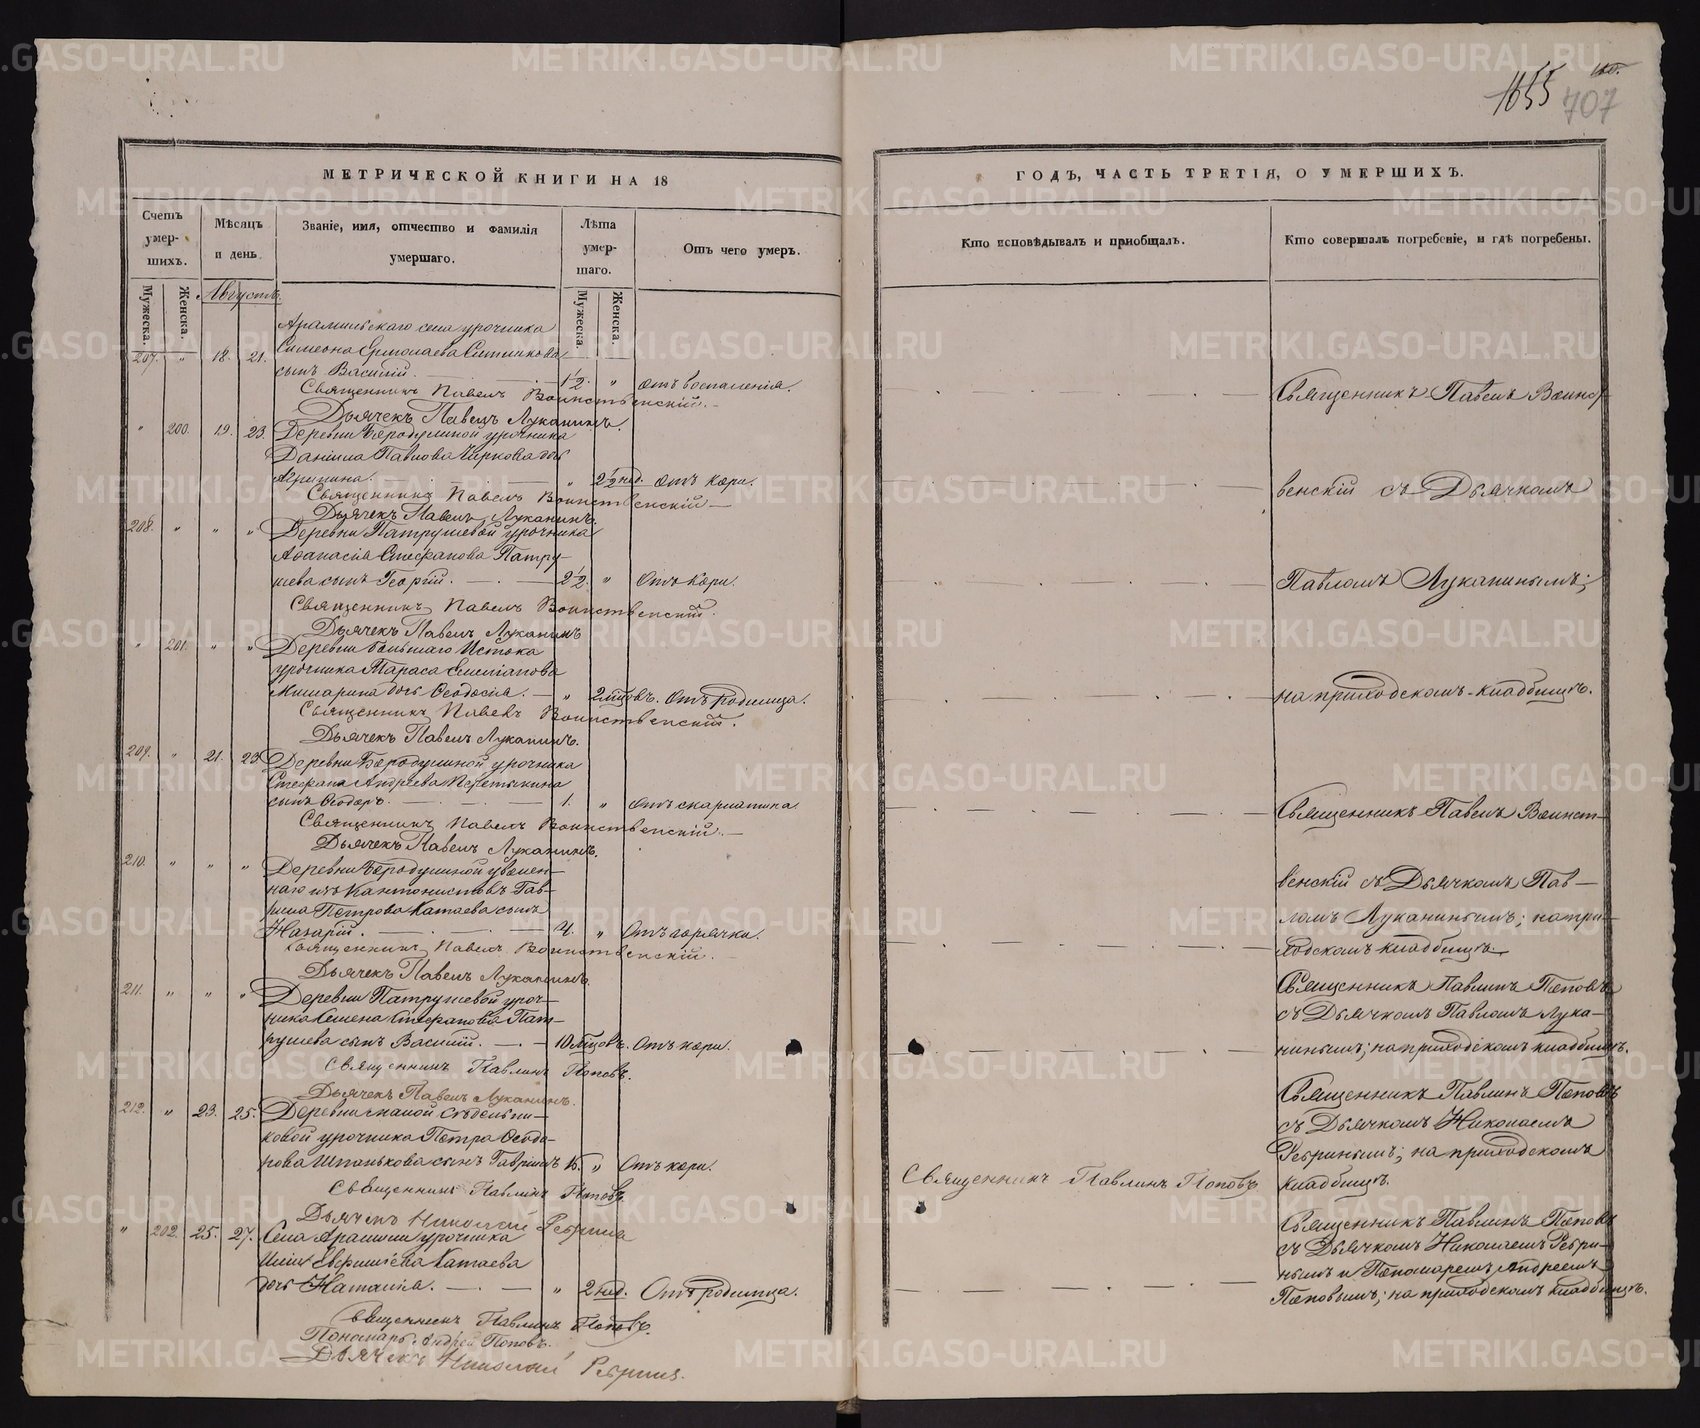 1655
707
МЕТРИЧЕСКОЙ КНИГИ НА 18
ГОДЪ, ЧАСТЬ ТРЕТІЯ, О УМЕРШИХЪ.
Счетъ умер-шихъ.
Мѣсяцъ и день
Званіе, имя, отчество и фамилія умершаго.
Лѣта умер-шаго.
Отъ чего умеръ.
Кто исповѣдывалъ и пріобщалъ.
Кто совершалъ погребеніе, и гдѣ погребены.
Мужеска.
Женска.
Августъ.
Мужеска.
Женска.
Арамильскаго села урочника
207. " 18. 21. Симеона Ермолаева Ситникова
сынъ Василій. 1½. " отъ воспаленія.
Священникъ Павелъ Воинственскій.
Дьячекъ Павелъ Луканинъ.
" 200. 19. 23. Деревни Бородулиной урочника
Даніила Павлова Чиркова дочь
Агрипина. " 2½ нед. отъ кори.
Священникъ Павелъ Воинственскій
Дьячекъ Павелъ Луканинъ.
208. " " " Деревни Патрушевой урочника
Аѳанасія Стефанова Патру-
шева сынъ Георгій. 2½. " Отъ кори.
Священникъ Павелъ Воинственскій.
Дьячекъ Павелъ Луканинъ
" 201. " " Деревни Большаго Истока
урочника Тараса
дочь Ѳеодосія. " 2 мѣсовъ. Отъ родимца.
Священникъ Павелъ Воинственскій.
Дьячекъ Павелъ Луканинъ.
209. " 21. 23. Деревни Бородулиной урочника
Стефана Андреева
сынъ Ѳеодоръ. 1. " Отъ скарлатина
Священникъ Павелъ Воинственскій.
Дьячекъ Павелъ Луканинъ.
210. " " " Деревни Бородулиной уволен-
наго изъ кантонистовъ Гав-
рила Петрова Катаева сынъ
Назарій. 4. " Отъ горячки.
Священникъ Павелъ Воинственскій.
Дьячекъ Павелъ Луканинъ.
211. " " " Деревни Патрушевой уроч-
ника Семена Стефанова Пат-
рушева сынъ Василій. 10 мѣсовъ. Отъ кори.
Священникъ Павлинъ Поповъ.
Дьячекъ Павелъ Луканинъ.
212. " 23. 25. Деревни малой Сѣдельни-
ковой урочника Петра Ѳеодо-
рова Шпанькова сынъ Гавріилъ " Отъ кори.
Священникъ Павлинъ Поповъ
Дьячекъ Николай Ребринъ
" 202. 25. 27. Села Арамили урочника
Катаева
дочь Наталія. " 2 нед. Отъ родимца.
Священникъ Павлинъ Поповъ.
Пономарь Андрей Поповъ.
Дьячекъ Николай Ребринъ.
Священникъ Павелъ Воинст-
венскій съ Дьячкомъ
Павломъ Луканинымъ;
на приходскомъ кладбищѣ.
Священникъ Павелъ Воинст-
венскій съ Дьячкомъ Пав-
ломъ Луканинымъ; на при-
ходскомъ кладбищѣ.
Священникъ Павлинъ Поповъ
съ Дьячкомъ Павломъ Лука-
нинымъ; на приходскомъ кладбищѣ.
Священникъ Павлинъ Поповъ
съ Дьячкомъ Николаемъ
Ребринымъ; на приходскомъ
Священникъ Павлинъ Поповъ
кладбищѣ.
Священникъ Павлинъ Поповъ
съ Дьячкомъ Николаемъ Ребри-
нымъ и Пономаремъ Андреемъ
Поповымъ; на приходскомъ кладбищѣ.
METRIKI.GASO-URAL.RU